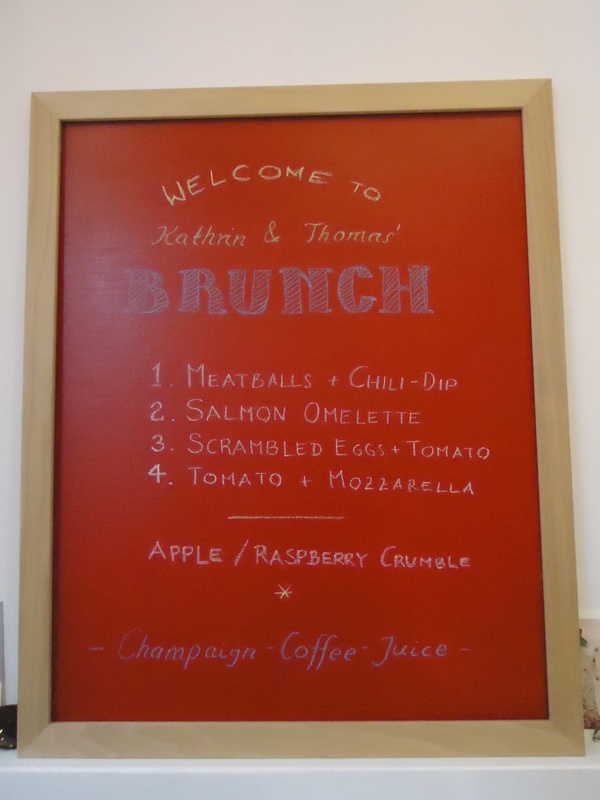 WELCOME TO
Kathrin & Thomas'
BRUNCH
1. MEATBALLS + CHILI-DIP
2. SALMON OMELETTE
3. SCRAMBLED EGGS + TOMATO
4. TOMATO + MOZZARELLA
APPLE / RASPBERRY CRUMBLE
*
- Champaign - Coffee - Juice -